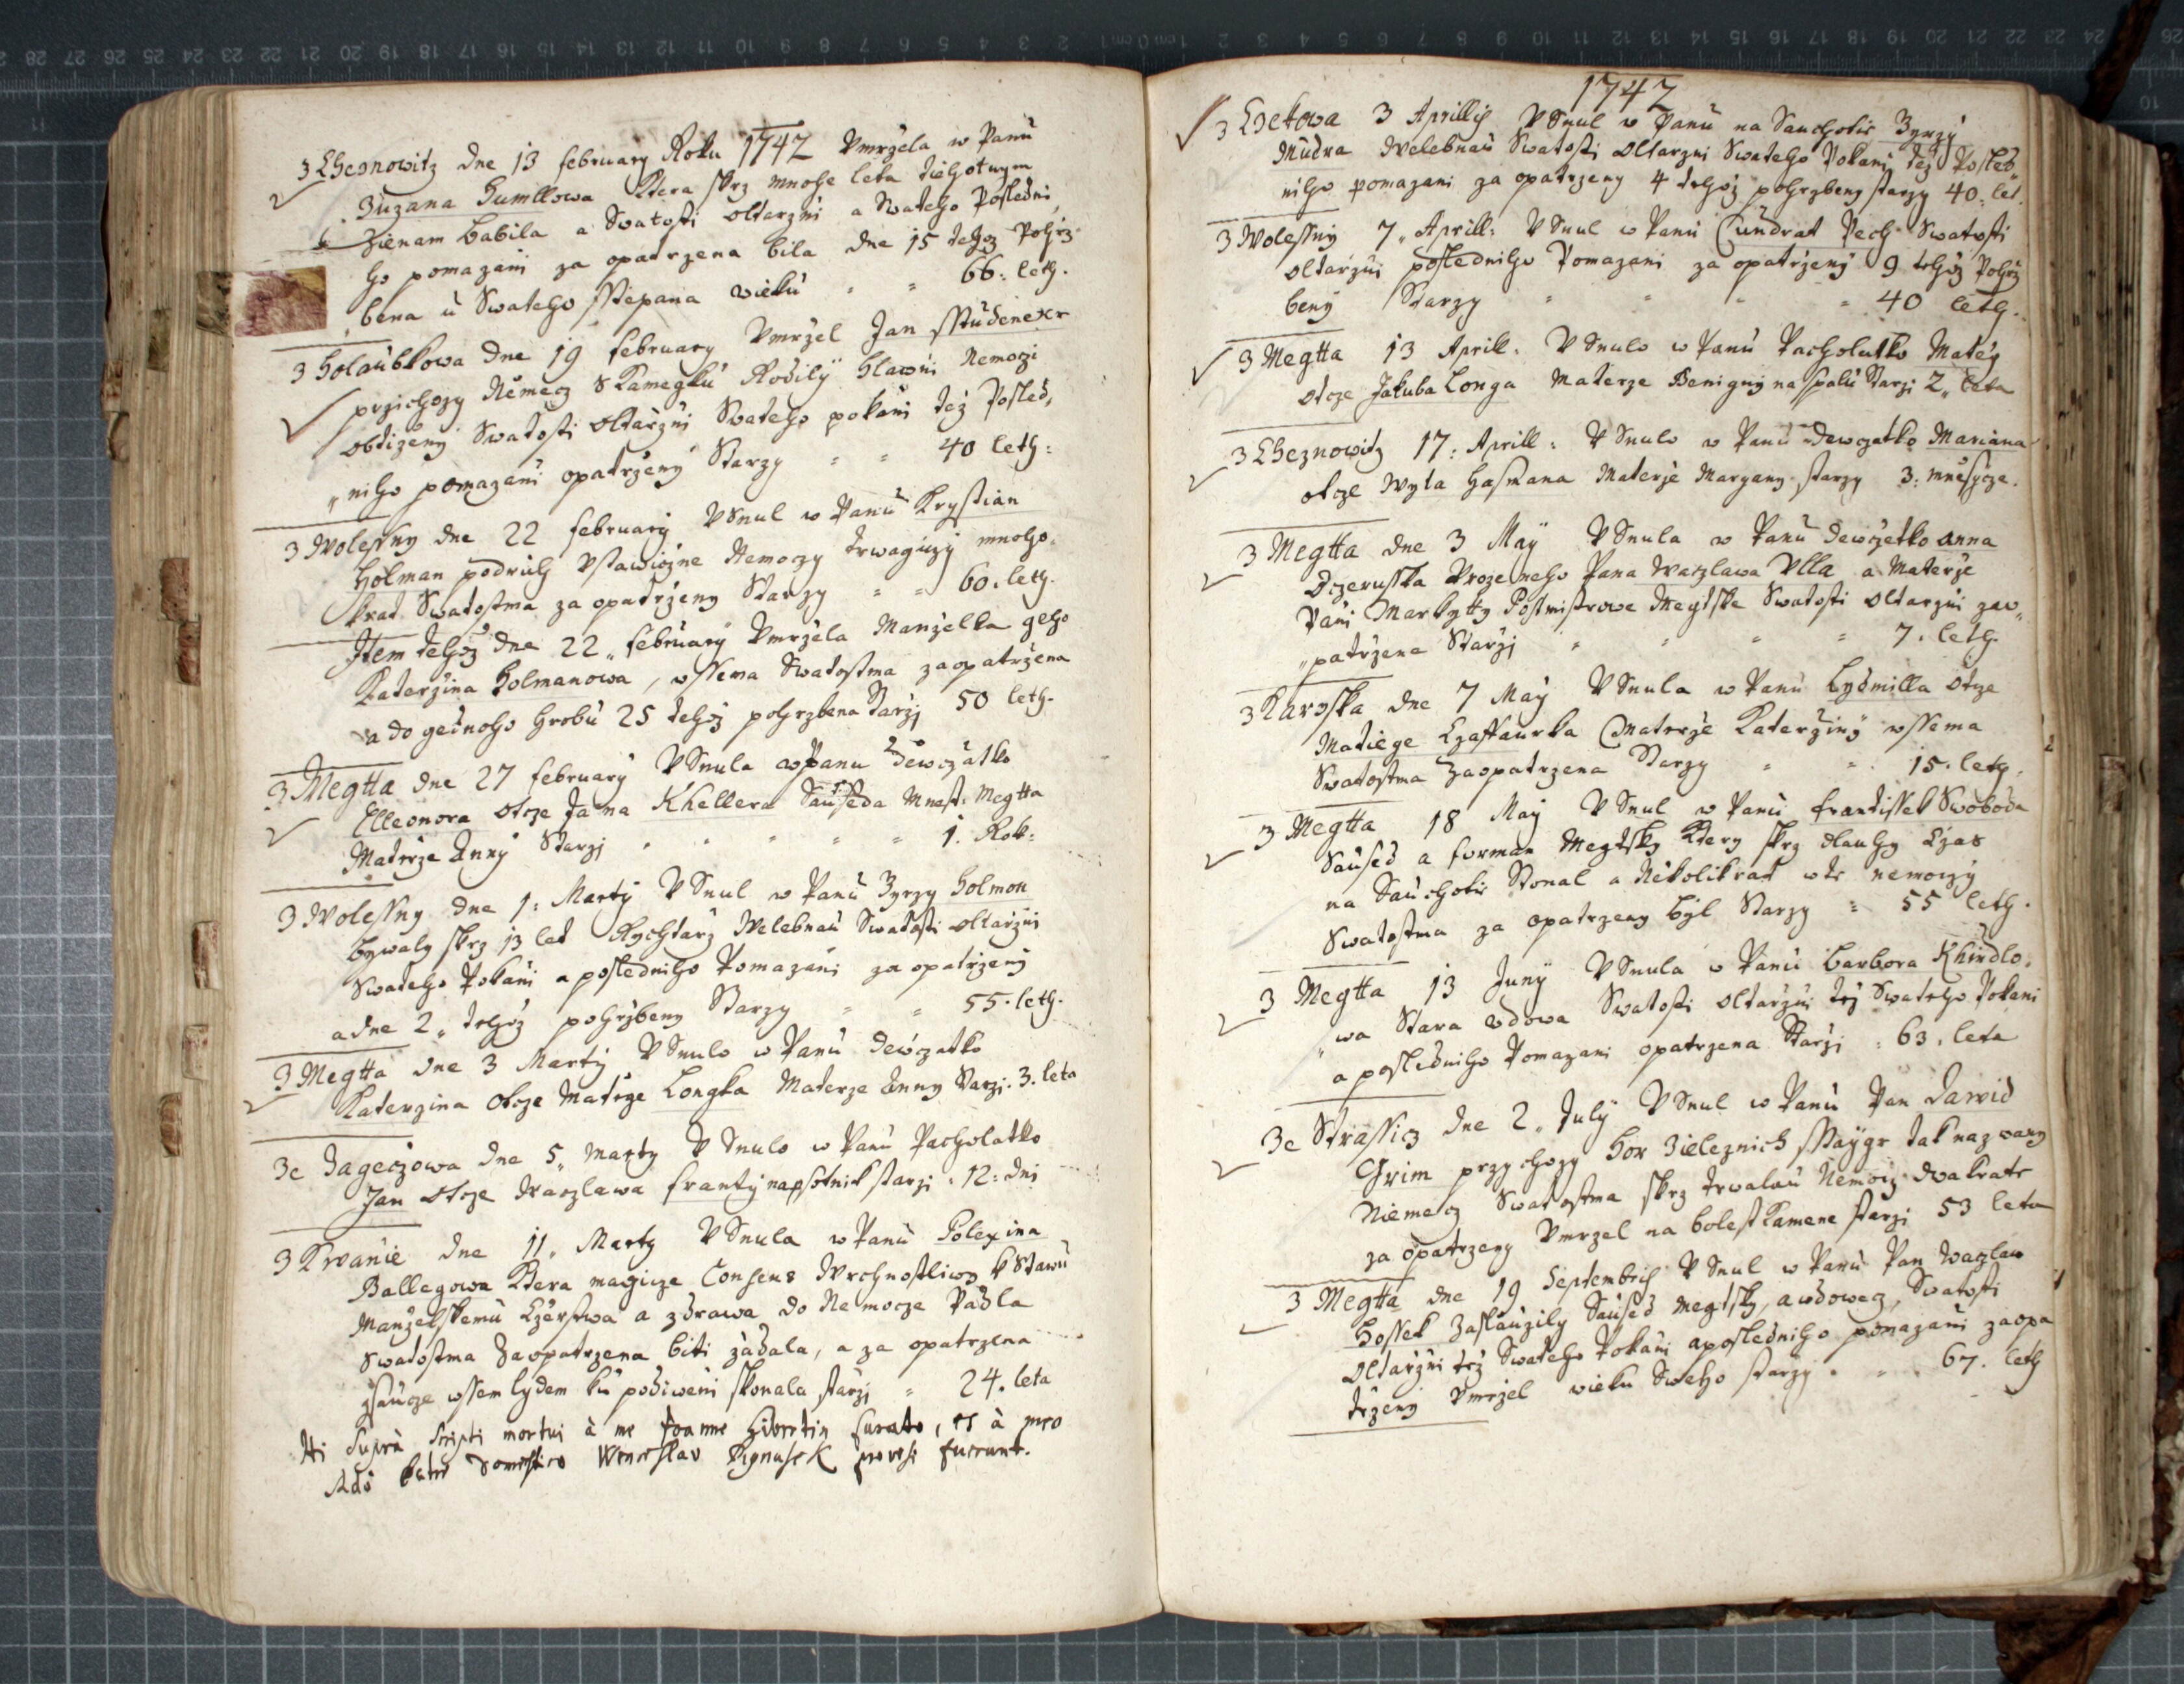 3 Cheznowitz dne 13 february Roku 1742 Vmrzela w Panu
Zuzana Humllowa Ktera skrz mnohe leta tiehotnym
Zienam babila a Swatosti oltarzni a Swateho Posledni
ho pomazani za opatrzena bila dne 15 tehoz Pohrz
bena u Swateho Sstiepana wieku 66: leth.
3 Holaubkowa dne 19 february Vmrzel Jan Sstudenexr
przichozy Nemecz Kamegku Rodily hlawni Nemoczi
obtizeny Swatosti oltarzni Swateho pokani tez Posled,
„niho pomazani opatrzeny Starzy 40 leth:
3 Wolessny dne 22 february VSnul w Panu Krystian
Holman podruh Vstawiczne Nemoczy trwagiczy mnoho
krat Swatostma za opatrzeny Starzy 60. leth.
Item tehoz dne 22„ february Vmrzela Manzelka geho
Katerzina Holmanowa, wssema Swatostma zaopatrzena
a do gednoho hrobu 25 tehoz pohrzbena Starzj 50 leth.
3 Megtta dne 27 february VSnula w Panu Dewczatko
Elleonora otcze Jana Khellera Sauseda Mnest: Megtta
Materze Anny Starzj 1. Rok:
3 Wolessny dne 1: Marty VSnul w Panu Zyrzy Holmon
bywaly skrz 13 let Rychtarz Welebnau Swatosti oltarzni
Swateho Pokani a posledniho Pomazani za opatrzeny
a dne 2„ tehoz pohrzbeny Starzy 55. leth.
3 Megtta dne 3 Marty VSnulo w Panu dewczatko
Katerzina otcze Matiege Longka Materze Anny Starzi. 3. leta
Ze Jageczowa dne 5„ Marty VSnulo w Panu Pacholatko
Jan otcze Waczlawa franty na psotnik starzi: 12: dni
3 Kwanie dne 11„ Marty VSnula w Panu Polexina
Ballegowa Ktera magicze Consens Wrchnostliwo k Stawu
Manzelskemu Czerstwa a zdrawa do Nemocze Padla
Swatostma Zaopatrzena biti zadala, a za opatrzena
gsaucze wssem lydem ku podiweni skonala starzj 24. leta
Hi supra scripti mortui à me Joanne Curato, et à meo
Wenceslao provisi fuerunt.
1742
3 Czekowa 3 Aprillis VSnul w Panu na Sauchotie Zyrzy
Mudra Welebnau Swatosti oltarzni Swateho Pokani tez Posled„
niho pomazani za opatrzeny 4 tehoz pohrzbeny starzy 40. let.
3 Wolessny 7„ Aprill: VSnul w Panu Cundrat Pech Swatosti
oltarzni posledniho Pomazani za opatrzeny 9 tehoz Pohrz
beny Starzy 40 leth.
3 Megtta 13 Aprill: VSnulo w Panu Pacholatko Matey
otcze Jakuba Longa Materze Benigny na spalu Starzi 2„ leta
3 Cheznowitz 17: Aprill: VSnulo w Panu dewczatko Mariana
otcze Wyta Hasmana Materze Maryany starzy 3: mnesycze.
3 Megtta dne 3 May VSnula w Panu dewczetko Anna
dczeruszka Vrozeneho Pana Waczlawa Ulla a Materze
Pani Markytty Postmistrowe Megtske Swatosti oltarzni zao„
„patrzena Starzj 7. leth.
3 Karoska dne 7 May VSnula w Panu Lydmilla otcze
Matiege Czaffaurka Materze Katerziny wssema
Swatostma Zaopatrzena Starzy 15. leth.
3 Megtta 18 May VSnul w Panu frantissek Swoboda
Saused a forman Megtsky Ktery skrz dlauhy Czas
na Sauchotie Stonal a Nekolikrat w te nemoczy
Swatostma za opatrzeny byl Starzy 55 leth.
3 Megtta 13 Juny VSnula w Panu Barbora Khindlo,
„wa Stara wdowa Swatosti oltarzni tez Swateho Pokani
a posledniho Pomazani opatrzena Starzi 63. leta
Ze Strassicz dne 2„ July VSnul w Panu Pan Dawid
Grim przychozy Hor Zieleznich Sstaygr tak nazwany
Niemecz Swatostma skrz trwalau Nemocz dwakrate
za opatrzeny Vmrzel na bolest kamene starzi 53 leta
3 Megtta dne 19 Septembris VSnul w Panu Pan Waczlaw
Hossek Zaslauzily Saused Megtsky, a wdowecz, Swatosti
Oltarzni tez Swateho Pokani a posledniho pomazani zaopa
trzeny Vmrzel wieku Sweho starzy. 67. leth